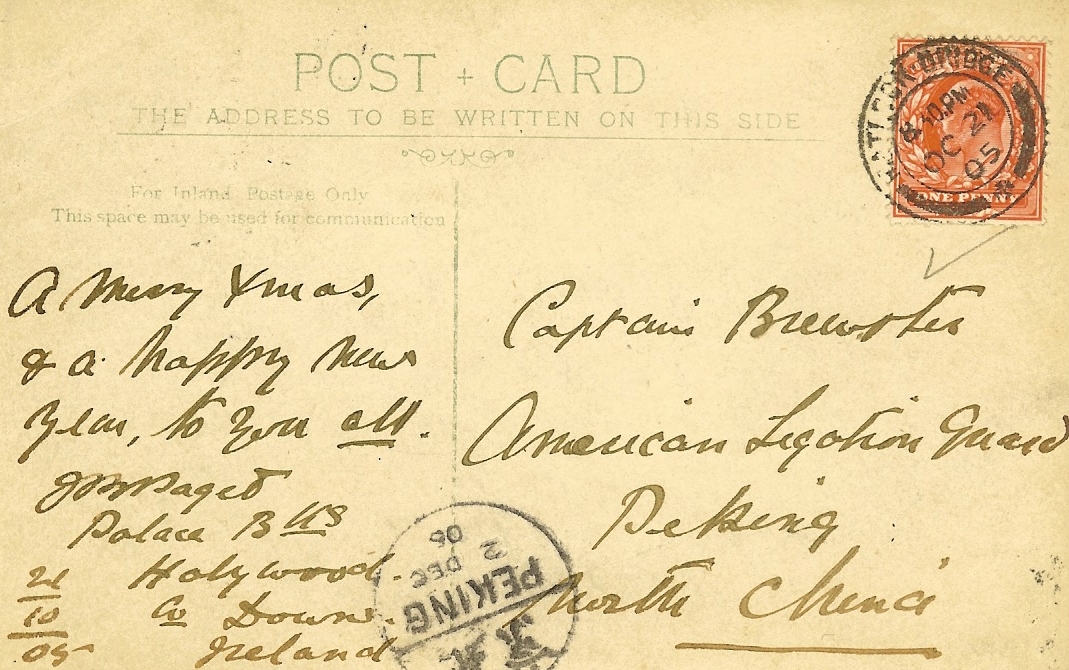 POST + CARD
THE ADDRESS TO BE WRITTEN ON THIS SIDE
For Inland Postage Only
This space may be used for communication
A Merry Xmas,
& a happy New
Year, to you all.
Paget
Palace Bks
Holywood.
Co Down.
Ireland
21
10
05
Captain Brewster
American Legation Guard
Peking
North China
BRIDGE
PM
OC 21
05
ONE PENNY
PEKING
2
DEC
05